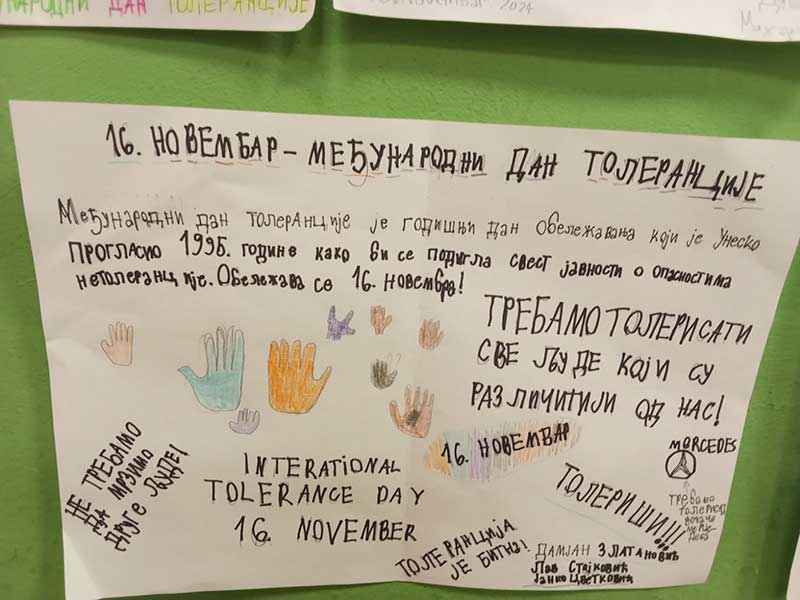 НАРОДНИ ДАН ТОЛЕРАНЦИЈЕ
2024
16. НОВЕМБАР – МЕЂУНАРОДНИ ДАН ТОЛЕРАНЦИЈЕ
Међународни дан толеранције је годишњи дан обележавања који је Унеско
ПРОГЛАСИО 1995. године како би се подигла свест јавности о опасностима
нетолеранције. Обележава се 16. Новембра!
ТРЕБАМО ТОЛЕРИСАТИ
СВЕ ЉУДЕ КОЈИ СУ
РАЗЛИЧИТИЈИ ОД НАС!
16. НОВЕМБАР
MORCEDES
НЕ ТРЕБАМО
ДА МРЗИМО
ДРУГЕ ЉУДЕ!
INTERATIONAL
TOLERANCE DAY
16. NOVEMBER
ТОЛЕРИШИ!!!
Требамо
возаче
ТОЛЕРАНЦИЈА
ЈЕ БИТНА!
ДАМЈАН ЗЛАТАНОВИЋ
Лав Стајковић
Јанко Цветковић